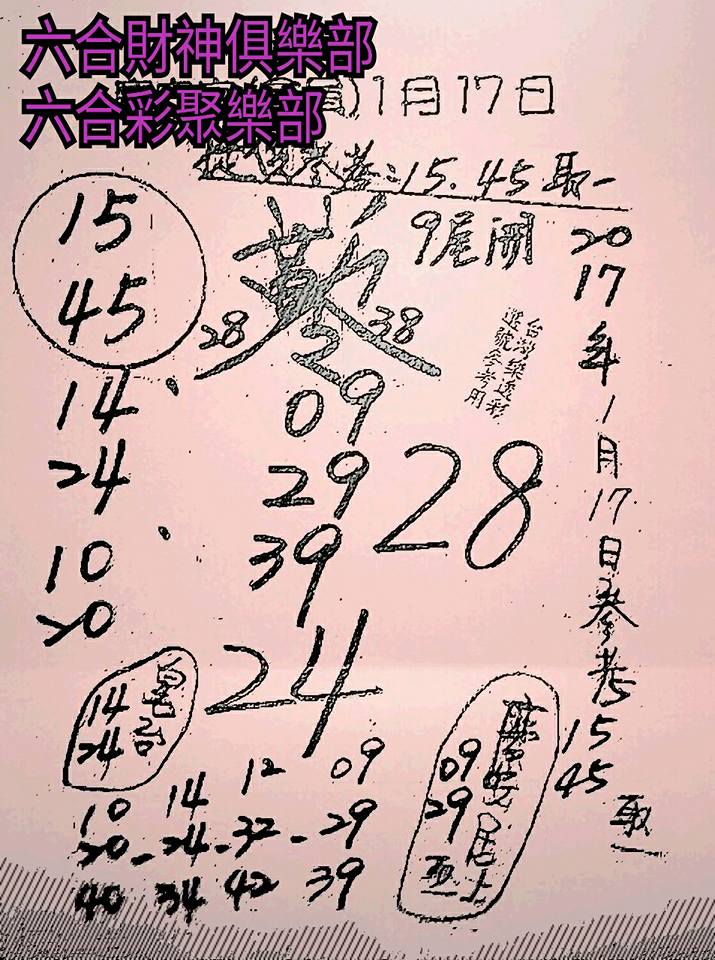 六合財神俱樂部
1月17日
六合彩聚樂部
參考:15.45取一
15
45
9尾開
28
38
29
台灣樂透彩
選號參考用
2017年1月17日參考
15
45
取一
14
24
10
20
09
29
39
28
24
14
24
10 14 12 09
20-24-32-29
40 34 42 39
09
29
居士